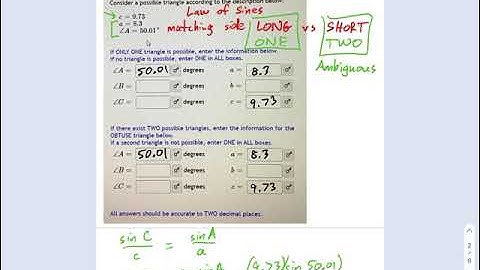 Consider a possible triangle according to the description below:
c = 9.73
a = 8.3
∠A = 50.01°
Law of Sines
matching side LONG ONE vs SHORT TWO
Ambiguous
If ONLY ONE triangle is possible, enter the information below.
If no triangle is possible, enter ONE in ALL boxes.
∠A = 50.01 degrees a = 8.3
∠B = degrees b =
∠C = degrees c = 9.73
If there exist TWO possible triangles, enter the information for the
OBTUSE triangle below.
If a second triangle is not possible, enter ONE in ALL boxes.
∠A = 50.01 degrees a = 8.3
∠B = degrees b =
∠C = degrees c = 9.73
All answers should be accurate to TWO decimal places.
sin C / c = sin A / a
(9.73)(sin 50.01)
2
8